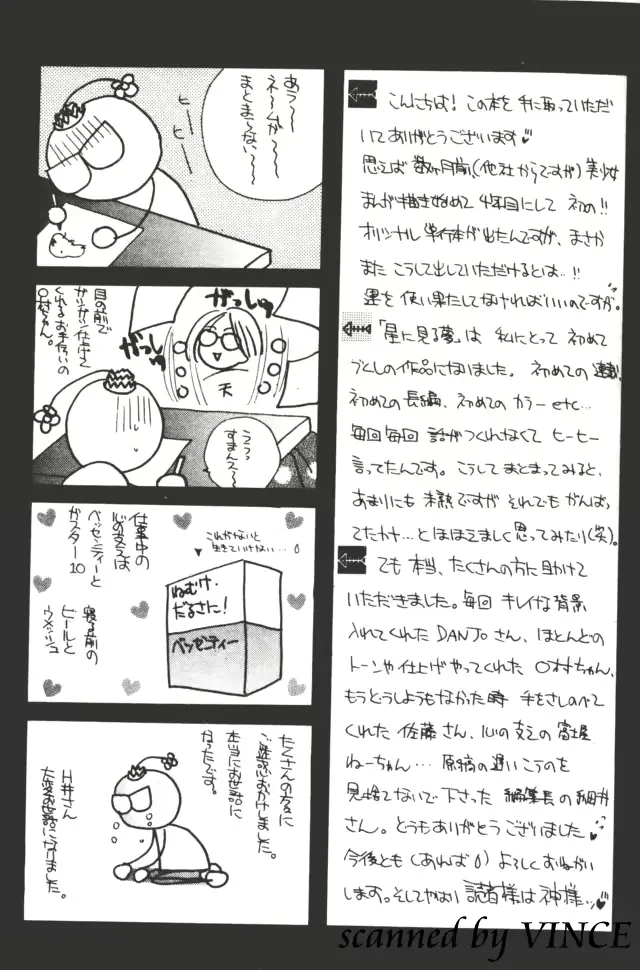 こんにちは!この本を手に取っていただ
いてありがとうございます♥
思えば数ヶ月前(他社からですが)美少女
まんが描き始めて4年目にして初の!!
オリジナル単行本が出たんですが、まさか
またこうして出していただけるとは…!!
運を使い果たしてなければいいのですが。
「星に見る夢」は私にとって初めて
づくしの作品になりました。初めての連載、
初めての長編、初めてのカラーetc…
毎回毎回話がつくれなくてヒーヒー
言ってたんです。こうしてまとまってみると、
あまりにも未熟ですがそれでもがんばっ
てたかナ…とほほえましく思ってみたり(笑)。
でも本当、たくさんの方に助けて
いただきました。毎回キレイな背景
入れてくれたDANJoさん、ほとんどの
トーンや仕上げやってくれた〇村ちゃん、
もうどうしようもなかった時手をさしのべて
くれた佐藤さん、心の支えの富士屋
ねーちゃん…原稿の遅いこうのを
見捨てないで下さった編集長の細井
さん。どうもありがとうございました♥
今後とも(あれば)よろしくおねがい
します。そしてやはり読者様は神様ッ♥
あう〜〜
ネームが〜〜
まとまらない〜〜
ヒー
ヒー
目の前で
ガシガシ仕上げて
くれるお手伝いの
〇村ちゃん。
がっしゅ
がっしゅ
天
うううっ
すまんえ〜
仕事中の
心の支えは
ベッセンティーと
ガスター10
寝る前の
ビールと
ウメッシュ
これがないと
生きていけない…
ねむけ・
だるさに!
ベッセンティー
たくさんの方に
ご迷惑おかけしました。
本当にお世話に
なったです。
H井さん
大変お世話になりました。
scanned by VINCE